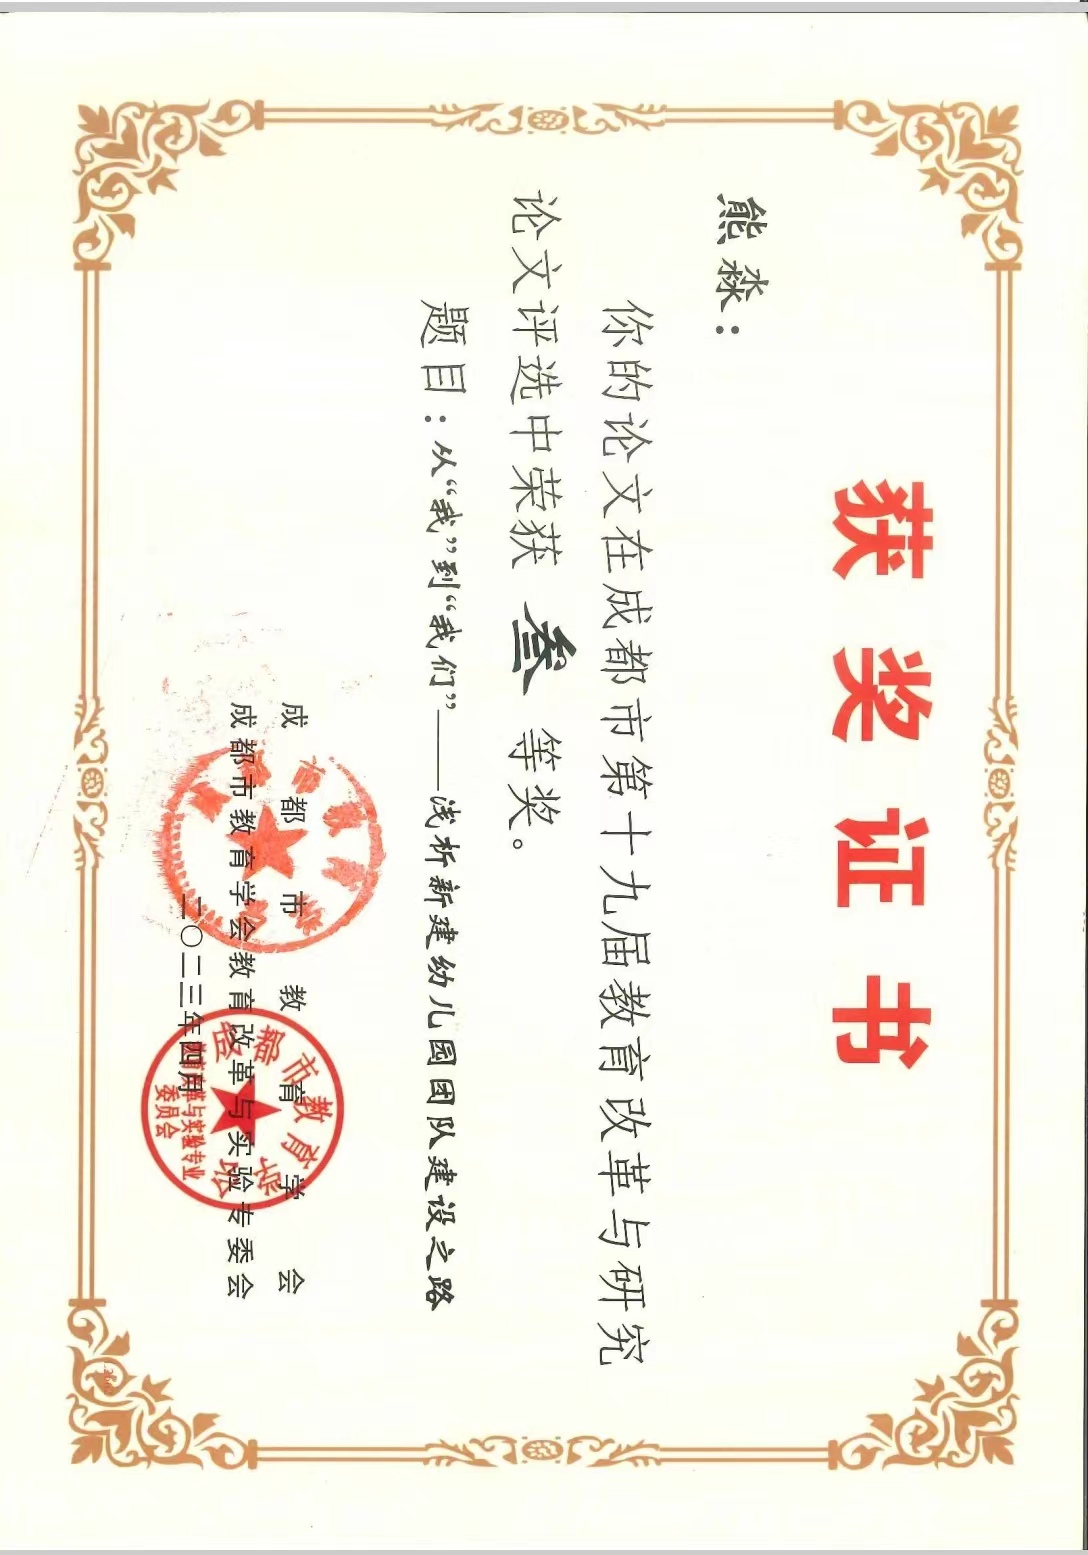 获奖证书
熊淼：
你的论文在成都市第十九届教育改革与研究
论文评选中荣获 叁 等奖。
题目：从“我”到“我们”——浅析新建幼儿园团队建设之路
成都市教育学会
成都市教育学会教育改革与实验专委会
二〇二三年四月
成都市教育学会
成都市教育学会
教育改革与实验专业
委员会